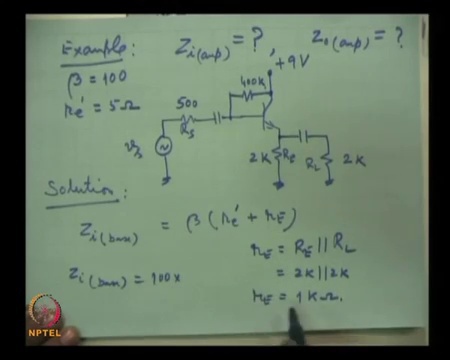 Example: Zi(amp) = ? , Zo(amp) = ?
β = 100
re' = 5 Ω
+9V
400k
500
RS
vs
2K RE
RL 2K
Solution:
Zi(base) = β (re' + rE)
rE = RE || RL
= 2K || 2K
Zi(base) = 100x
rE = 1 KΩ.
NPTEL